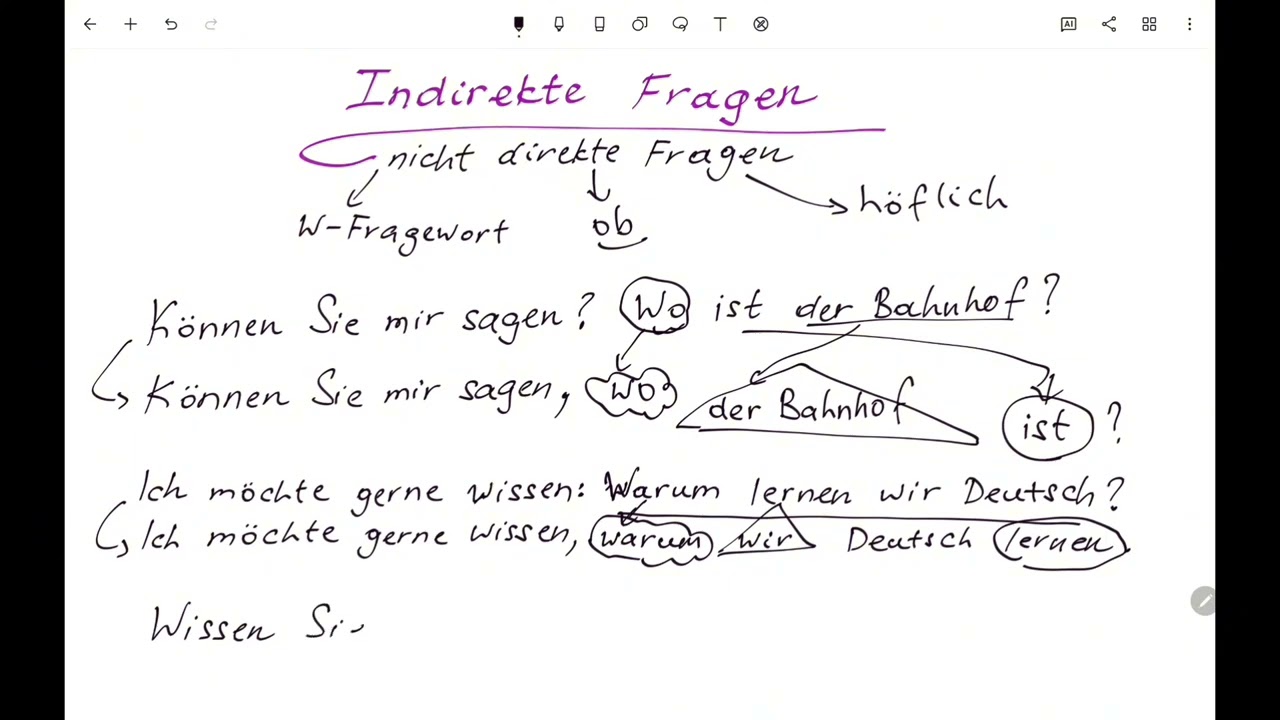 Indirekte Fragen
nicht direkte Fragen
W-Fragewort ob höflich
Können Sie mir sagen? Wo ist der Bahnhof?
Können Sie mir sagen, wo der Bahnhof ist?
Ich möchte gerne wissen: Warum lernen wir Deutsch?
Ich möchte gerne wissen, warum wir Deutsch lernen.
Wissen Si